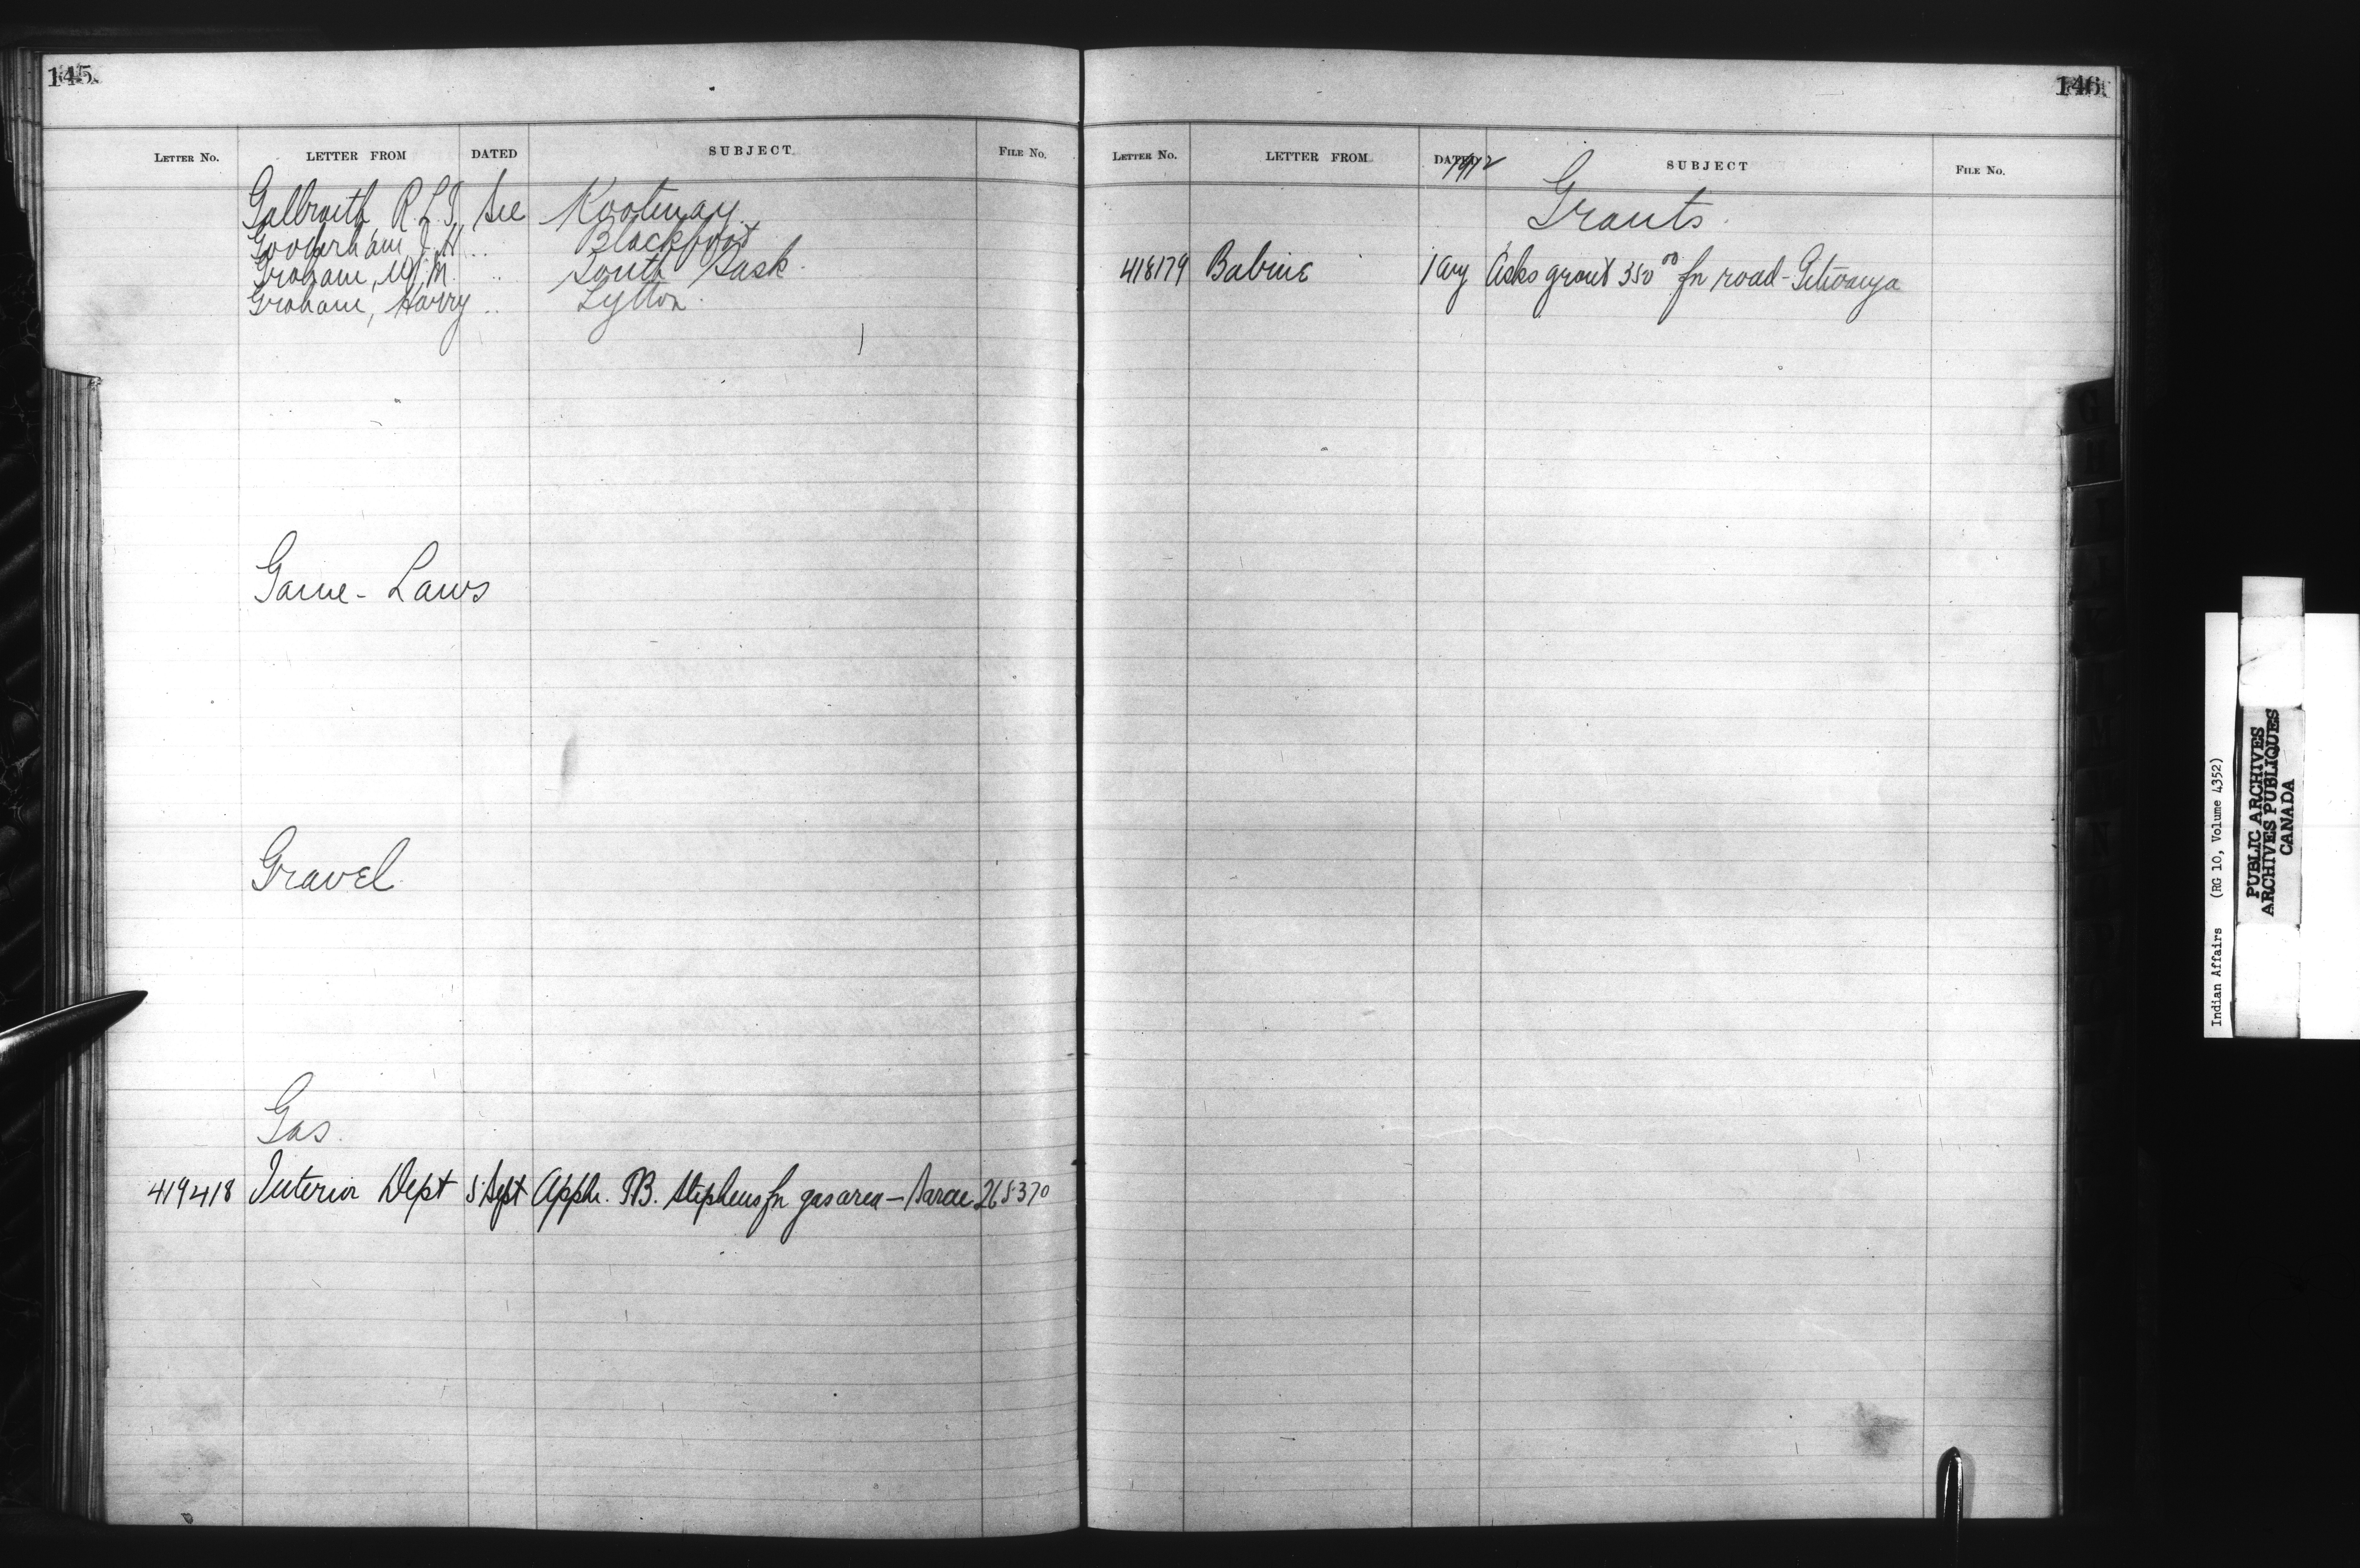 145.
LETTER NO. LETTER FROM DATED SUBJECT FILE No.
Galbraith R.L.T. See Kootenay
Gooderham J.H. .. Blackfoot
Graham, W.M. .. South Sask.
Graham, Harry .. Lytton.
Game - Laws
Gravel
Gas.
419418 Interior Dept 5 Sept Appln. T.B. Stephens fr gas area - Sarcee 265370
146.
LETTER NO. LETTER FROM DATED SUBJECT FILE No.
1912
Grants.
418179 Babine 1 Aug Asks grant 350 00 fr road -
G
H
I
M
N
Indian Affairs (RG 10, Volume 4352)
PUBLIC ARCHIVES
ARCHIVES PUBLIQUES
CANADA